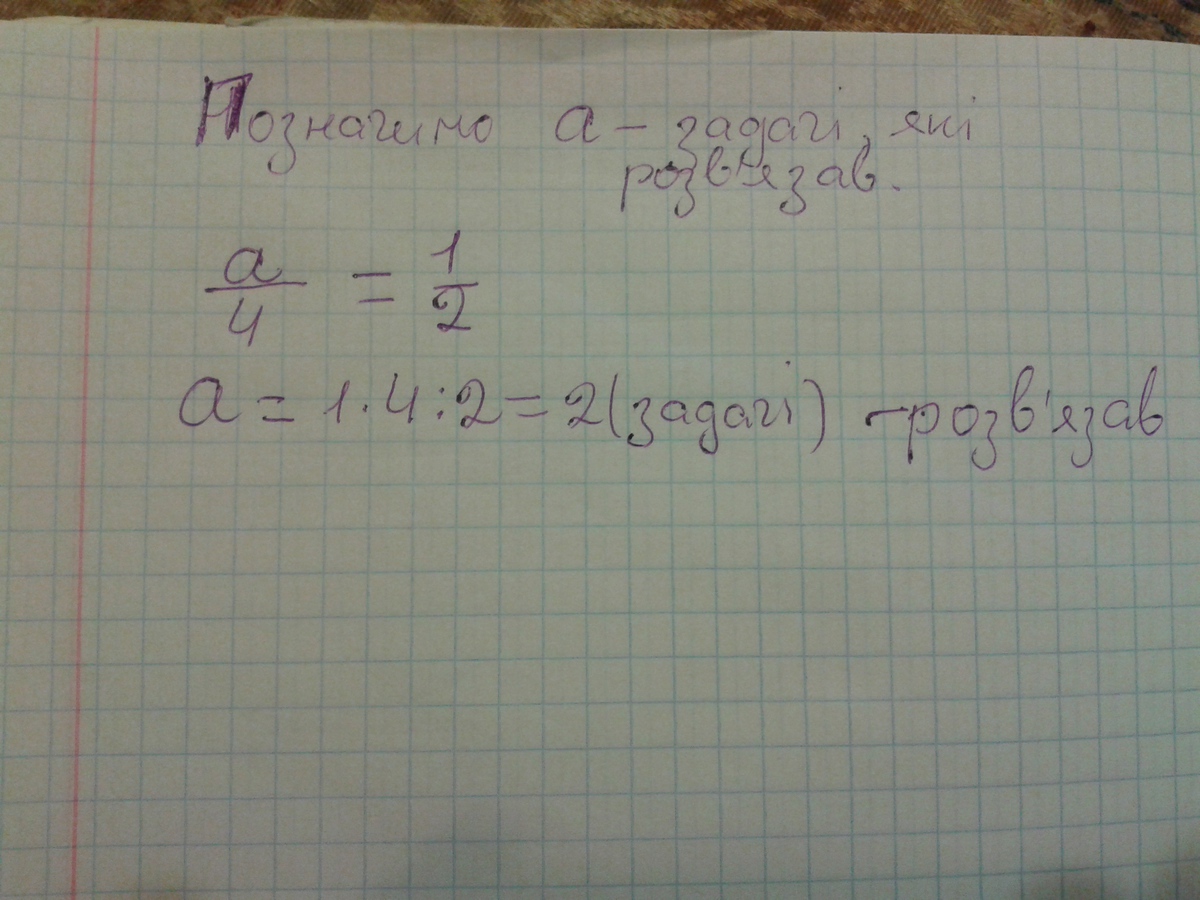 Позначимо а – задачі, які
розв'язав.
а/4 = 1/2
а = 1·4:2=2(задачі) –розв'язав